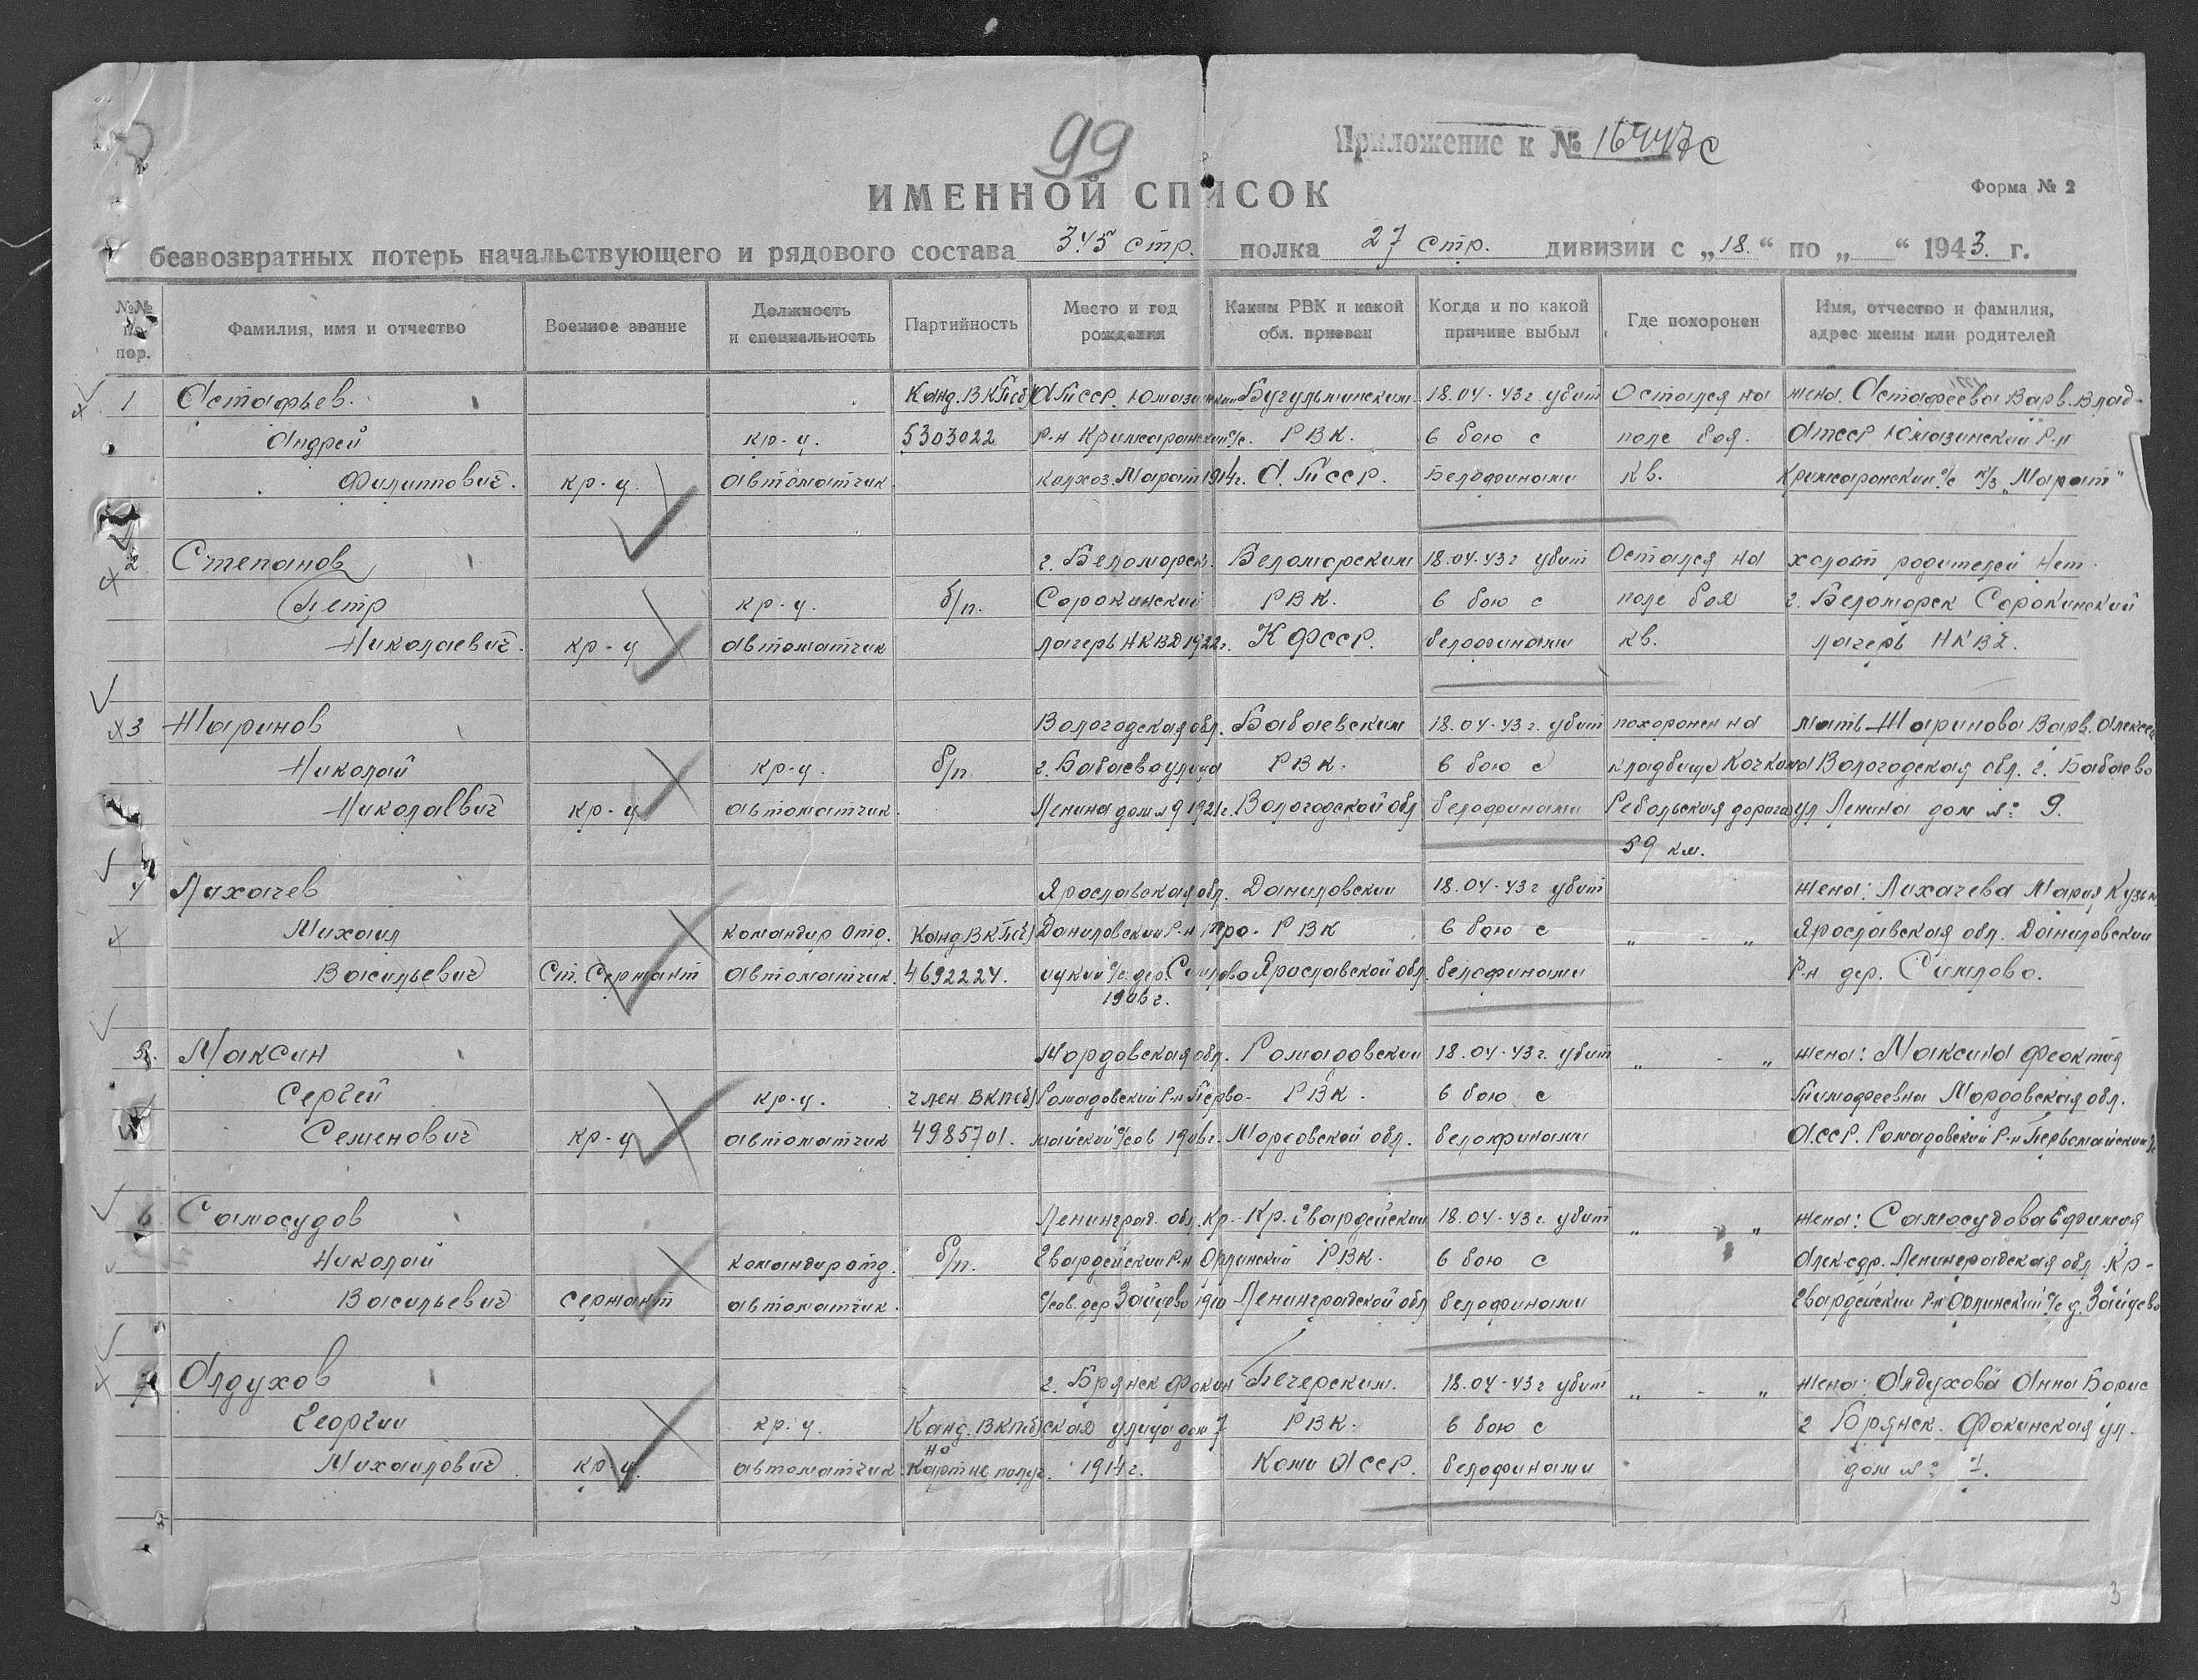 99
Приложение к № 16447с
ИМЕННОЙ СПИСОК
Форма № 2
безвозвратных потерь начальствующего и рядового состава 345 стр. полка 27 стр. дивизии с „18." по „ " 1943. г.
№№ по пор. Фамилия, имя и отчество Военное звание Должность и специальность Партийность Место и год рождения Каким РВК и какой обл. призван Когда и по какой причине выбыл Где похоронен Имя, отчество и фамилия, адрес жены или родителей
1 Астафьев. Канд. ВКП(б) АТССР. Бугульминским 18.04.43г. убит Остался на жена. Астафьева Варв. Влад-
Андрей кр-ц. 5303022 Р-н РВК. в бою с поле боя. АТССР Ютазинский Р-н
Филиппович. кр-ц. автоматчик колхоз. Марат 1914г. А.ТССР. белофинами кв. с/с к/з „Марат"
2 Степанов г. Беломорск. Беломорским 18.04.43г убит Остался на холост родителей нет.
Петр кр-ц. б/п. Сорокинский РВК. в бою с поле боя г. Беломорск Сорокинский
Николаевич. кр-ц автоматчик лагерь НКВД 1922г. КФССР. белофинами кв. лагерь НКВД.
3 Жаринов Вологодская обл. Бабаевским 18.04.43г. убит похоронен на мать Жаринова Варв. Алексе
Николай кр-ц. б/п г. Бабаево улица РВК. в бою с кладбище Кочкома Вологодская обл. г. Бабаево
Николаевич кр-ц. автоматчик. Ленина дом № 9 1921г. Вологодской обл белофинами Ребольская дорога ул Ленина дом №: 9.
59 км.
4 Лихачев Ярославская обл. Даниловский 18.04.43г убит жена: Лихачева Мария Кузьм
Михаил командир отд. Канд ВКП(б) Даниловский Р-н РВК в бою с „ - „ Ярославская обл. Даниловский
Васильевич Ст. Сержант автоматчик. 4692224. с/с дер. Ярославской обл. белофинами Р-н дер. Симлово.
1906г.
5. Максин Мордовская обл. Ромадовский 18.04.43г. убит „ - „ жена: Максина
Сергей кр-ц. член ВКП(б) Ромадовский Р-н Перво- РВК. в бою с Тимофеевна Мордовская обл.
Семенович кр-ц автоматчик 4985701. майский с/сов 1906г. Мордовской обл. белофинами АССР. Ромадовский Р-н Первомайский с/с
6 Самосудов Ленинград. обл. Кр- Кр. Гвардейским 18.04.43г. убит „ - „ жена: Самосудова Ефимия
Николай командир отд. б/п. Гвардейский Р-н Орлинский РВК. в бою с Алек-сдр. Ленинградская обл. Кр-
Васильевич сержант автоматчик. с/сов. дер Зайцево 1910 Ленинградской обл белофинами Гвардейский Р-н Орлинский с/с д. Зайцево
7 Алдухов г. Брянск Фокин Печерским. 18.04.43г убит „ - „ жена: Алдухова Анна Борис
Георгий кр-ц. Канд. ВКП(б) ская улица дом 7 РВК. в бою с г Брянск. Фокинская ул.
Михайлович кр-ц. автоматчик. но карт не получ. 1914г. Коми АССР. белофинами дом №:
3